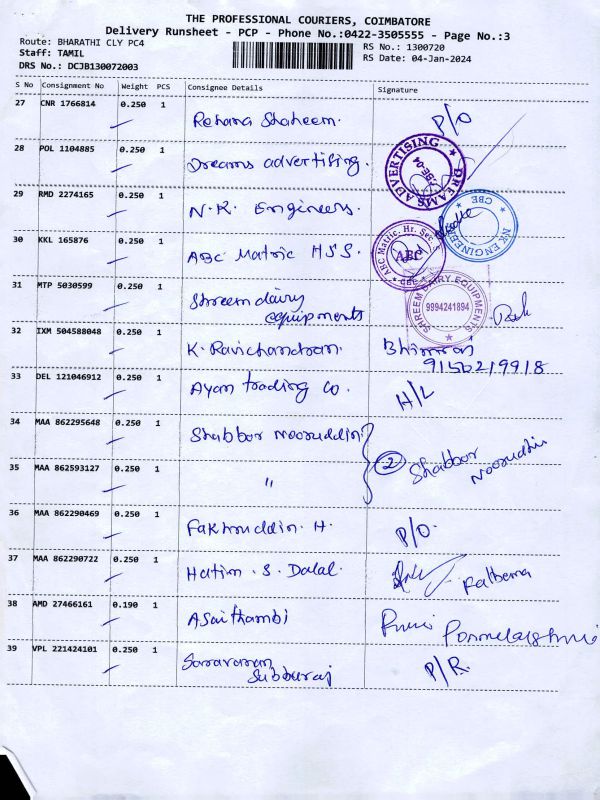 THE PROFESSIONAL COURIERS, COIMBATORE
Delivery Runsheet - PCP - Phone No.:0422-3505555 - Page No.:3
Route: BHARATHI CLY PC4
RS No.: 1300720
Staff: TAMIL
RS Date: 04-Jan-2024
DRS No.: DCJB130072003
S No Consignment No Weight PCS Consignee Details Signature
27 CNR 1766814 0.250 1 Rehana Shaheem. P/O
28 POL 1104885 0.250 1 Dreams advertising.
DREAMS ADVERTISING CBE-04
29 RMD 2274165 0.250 1 N.K. Engineers.
NK ENGINEERS CBE
30 KKL 165876 0.250 1 ABC Matric HSS.
ABC Matric. Hr. Sec. S ABC CBE
31 MTP 5030599 0.250 1 Shreem dairy
equipments
SHREEM DAIRY EQUIPMENTS 9994241894
32 IXM 504588048 0.250 1 K. Ravichandran.
33 DEL 121046912 0.250 1 Ayan trading Co. H/L
34 MAA 862295648 0.250 1 Shabbor Nooruddin
35 MAA 862593127 0.250 1 "
2 Shabbor
Nooruddin
36 MAA 862290469 0.250 1 Fakhruddin. H. P/O.
37 MAA 862290722 0.250 1 Hatim . S. Dalal.
38 AMD 27466161 0.190 1 Asaithambi
39 VPL 221424101 0.250 1 Saravanan
Subburaj P/R.